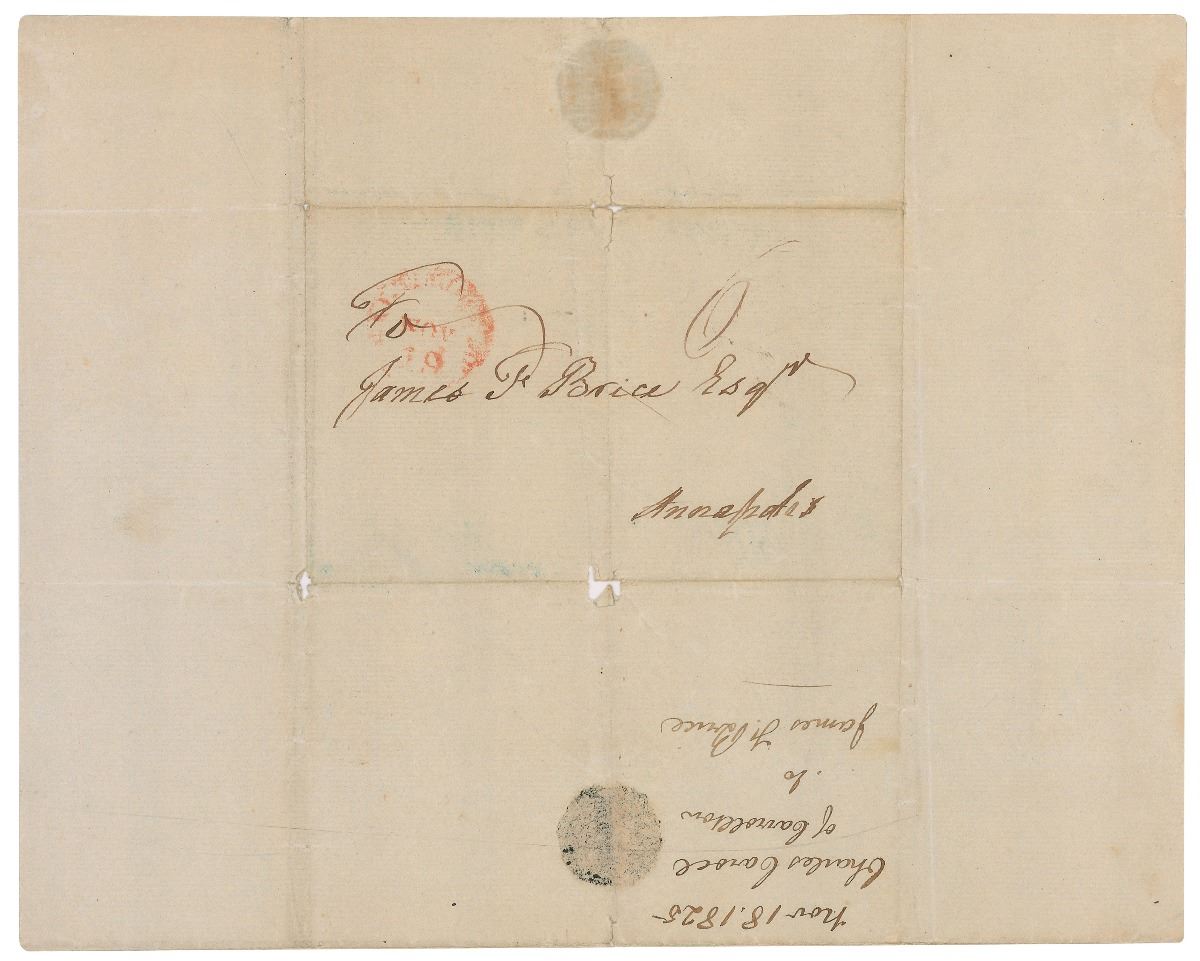 To
James F Brice Esqr
6
Annapolis
NOV
19
Nov 18. 1825
Charles Carroll
of Carrollton
to
James F. Brice